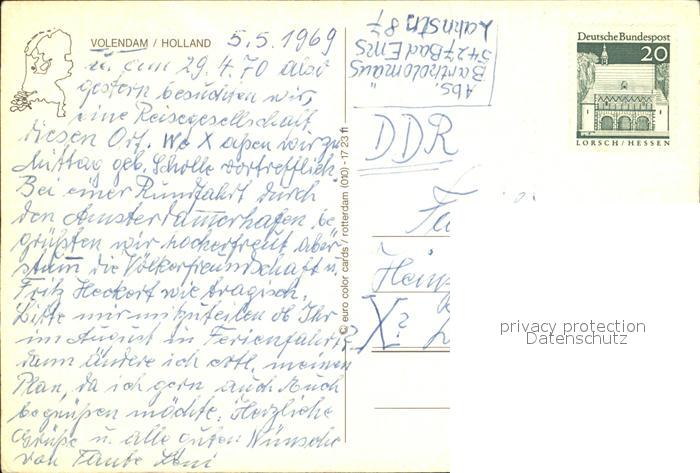 VOLENDAM / HOLLAND 5.5.1969
u. am 29.4.70 also
gestern besuchten wir,
eine Reisegesellschaft
diesen Ort. Wo X aßen wir zu
Mittag geb. Scholle vortrefflich.
Bei einer Rundfahrt durch
den Amsterdamerhafen be
grüßten wir hocherfreut aber
stumm die Völkerfreundschaft u.
Fritz Heckert wie tragisch.
Bitte mir mitzuteilen ob Ihr
im August in Ferien fahrt?
dann ändere ich evtl. meinen
Plan, da ich gern auch Euch
begrüßen möchte. Herzliche
Grüße u. alle guten Wünsche
von Tante Leni
© euro color cards / rotterdam (010) - 17 23 11
Abs.
Bartholomäus
5427 Bad Ems
Lahnstr. 87
Deutsche Bundespost
20
LORSCH / HESSEN
DDR
Fa
X?
privacy protection
Datenschutz